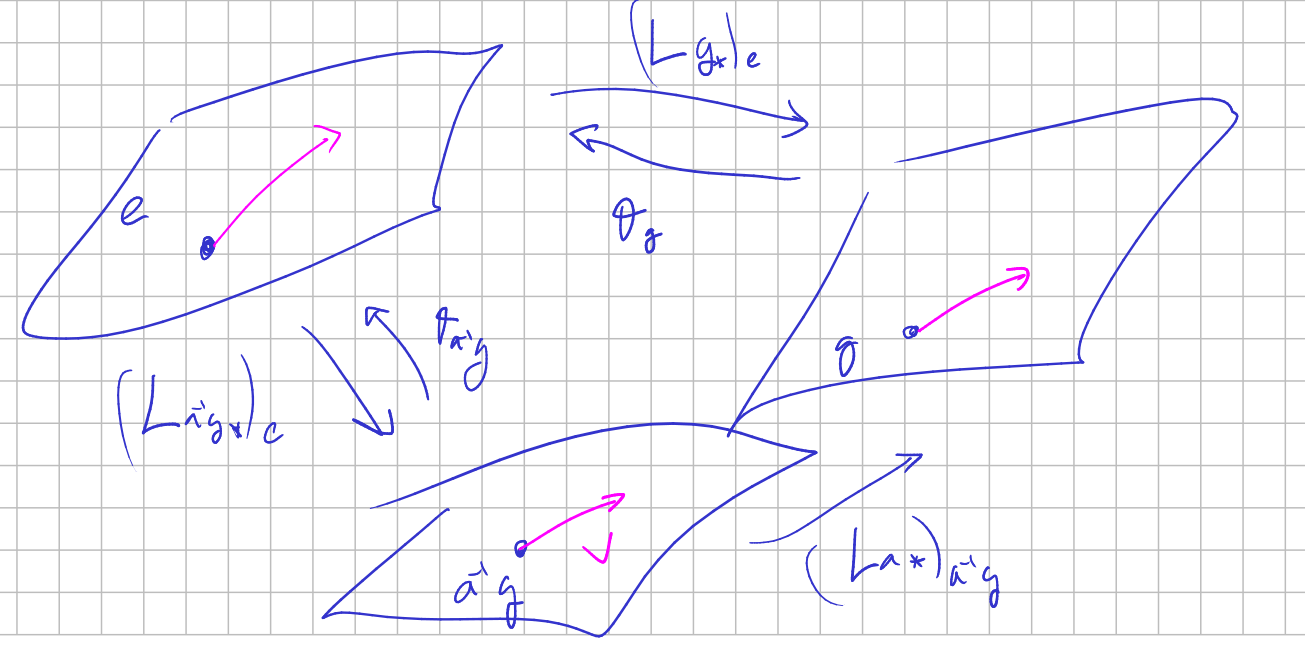 (L g*)e
e
θg
θa⁻¹g
g
(La⁻¹g*)e
V
a⁻¹g
(La*)a⁻¹g